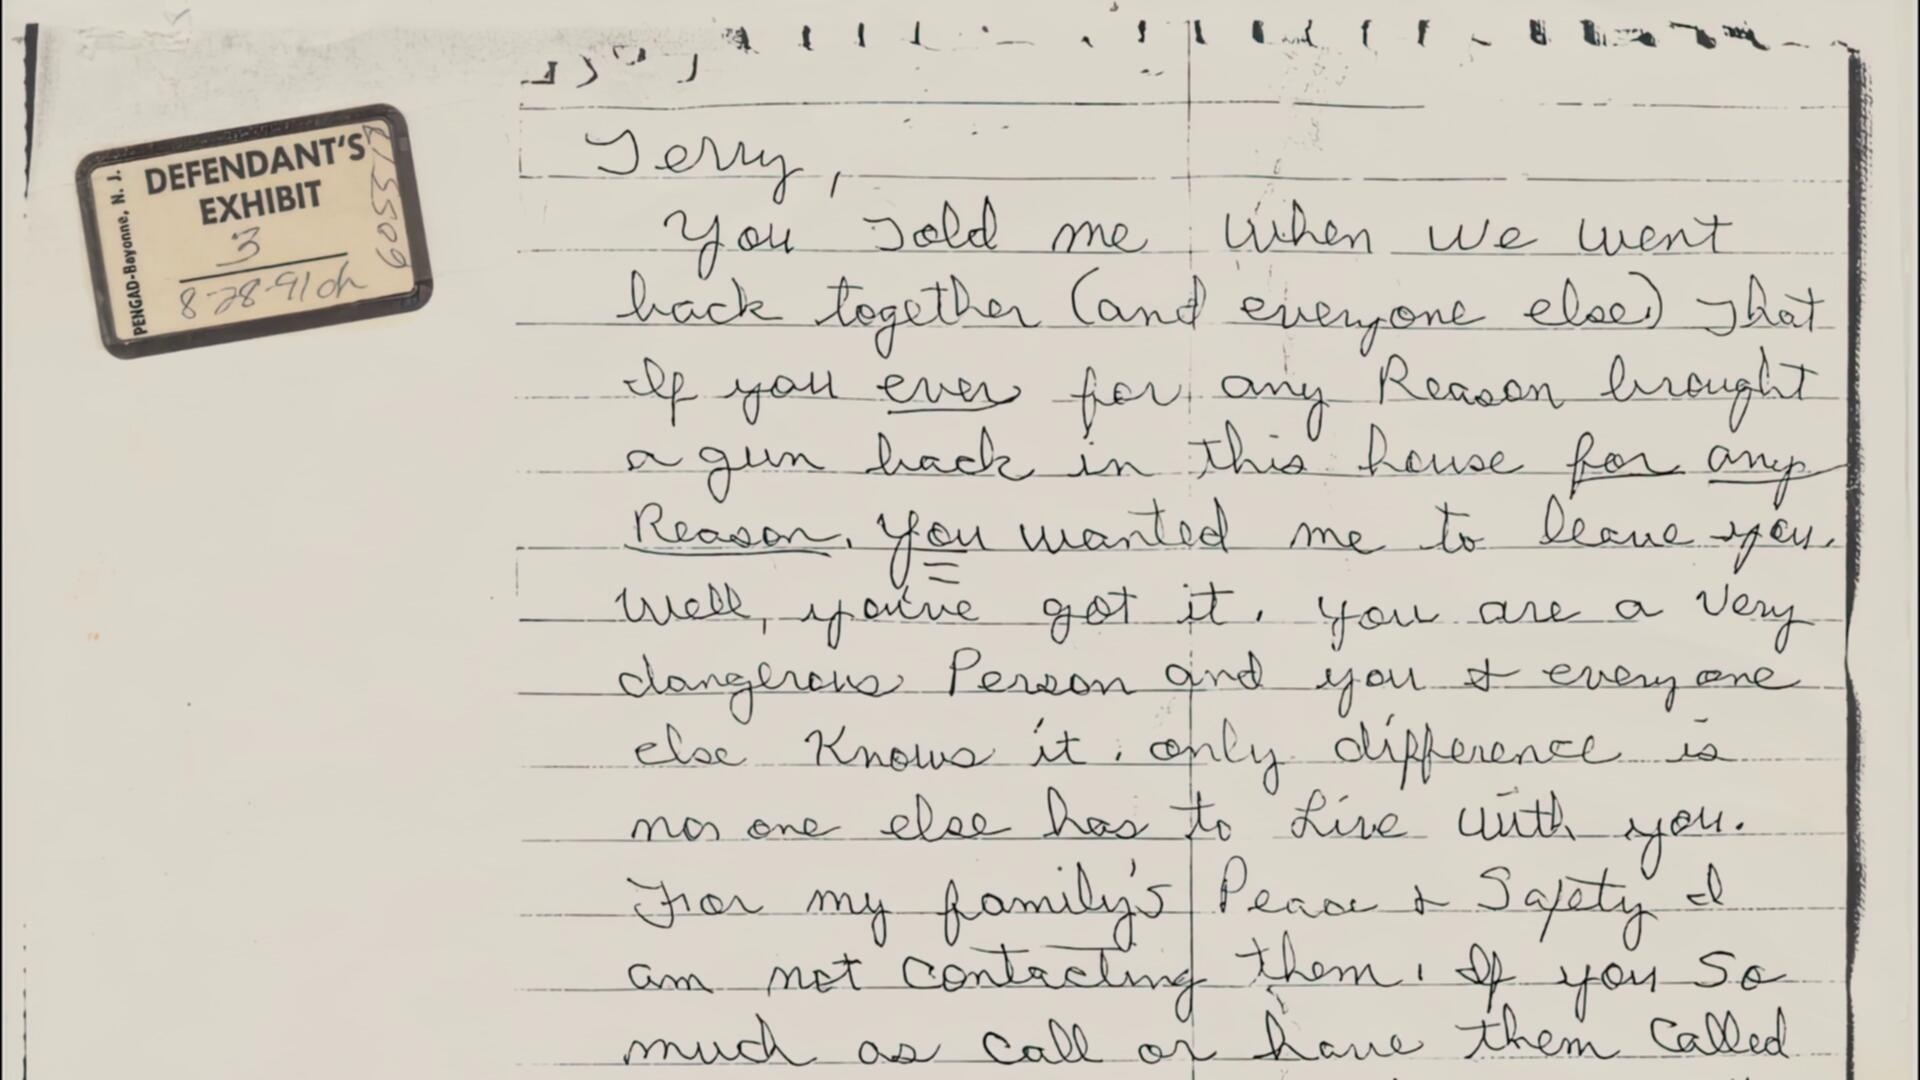 DEFENDANT'S
EXHIBIT
3
8-28-91 ch
PENGAD-Bayonne, N. J.
Terry,
You told me when we went
back together (and everyone else) that
If you ever for any Reason brought
a gun back in this house for any
Reason. you wanted me to leave you.
Well, you've got it. you are a very
dangerous Person and you & everyone
else Knows it. only difference is
no one else has to Live with you.
For my family's Peace & Safety I
am not contacting them. If you So
much as call or have them called